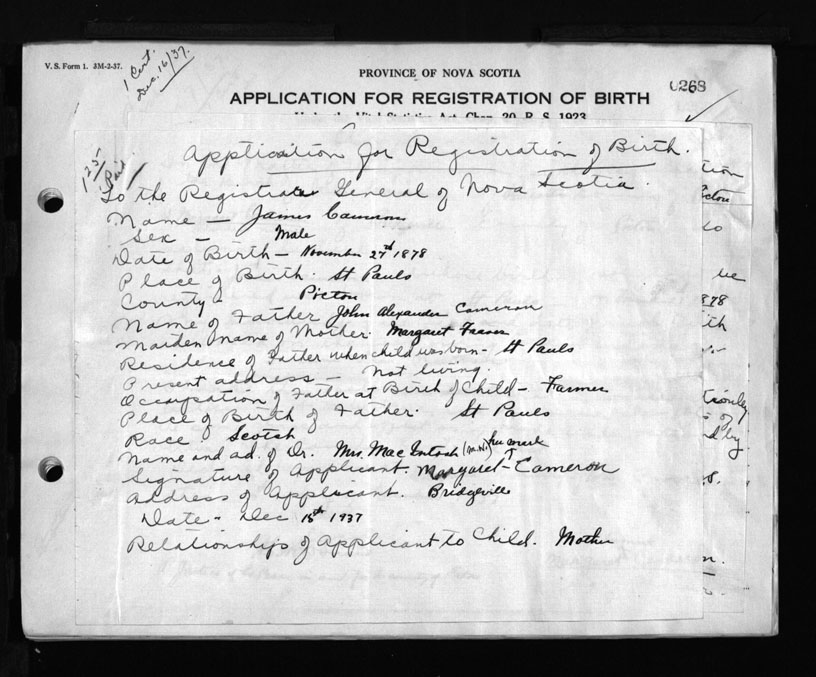 V. S. Form 1. 3M-2-37.
1 Cert.
Dec. 16/37.
PROVINCE OF NOVA SCOTIA
0268
APPLICATION FOR REGISTRATION OF BIRTH
Under the Vital Statistics Act, Chap. 20, R. S. 1923
125
Paid
Application for Registration of Birth.
To the Registrar General of Nova Scotia.
Name — James Cameron
Sex — Male
Date of Birth — November 27th 1878
Place of Birth. St Pauls
County - Pictou
Name of Father John Alexander Cameron
Maiden name of Mother. Margaret Fraser
Residence of Father when child was born - St Pauls
Present address — Not living.
Occupation of Father at Birth of Child - Farmer
Place of Birth of Father. St Pauls
Race Scotch
Name and ad. of Dr. Mrs. MacIntosh (M.W.)
Signature of Applicant. Margaret Cameron
her mark
Address of Applicant. Bridgeville
Date - Dec 15th 1937
Relationship of Applicant to Child. Mother